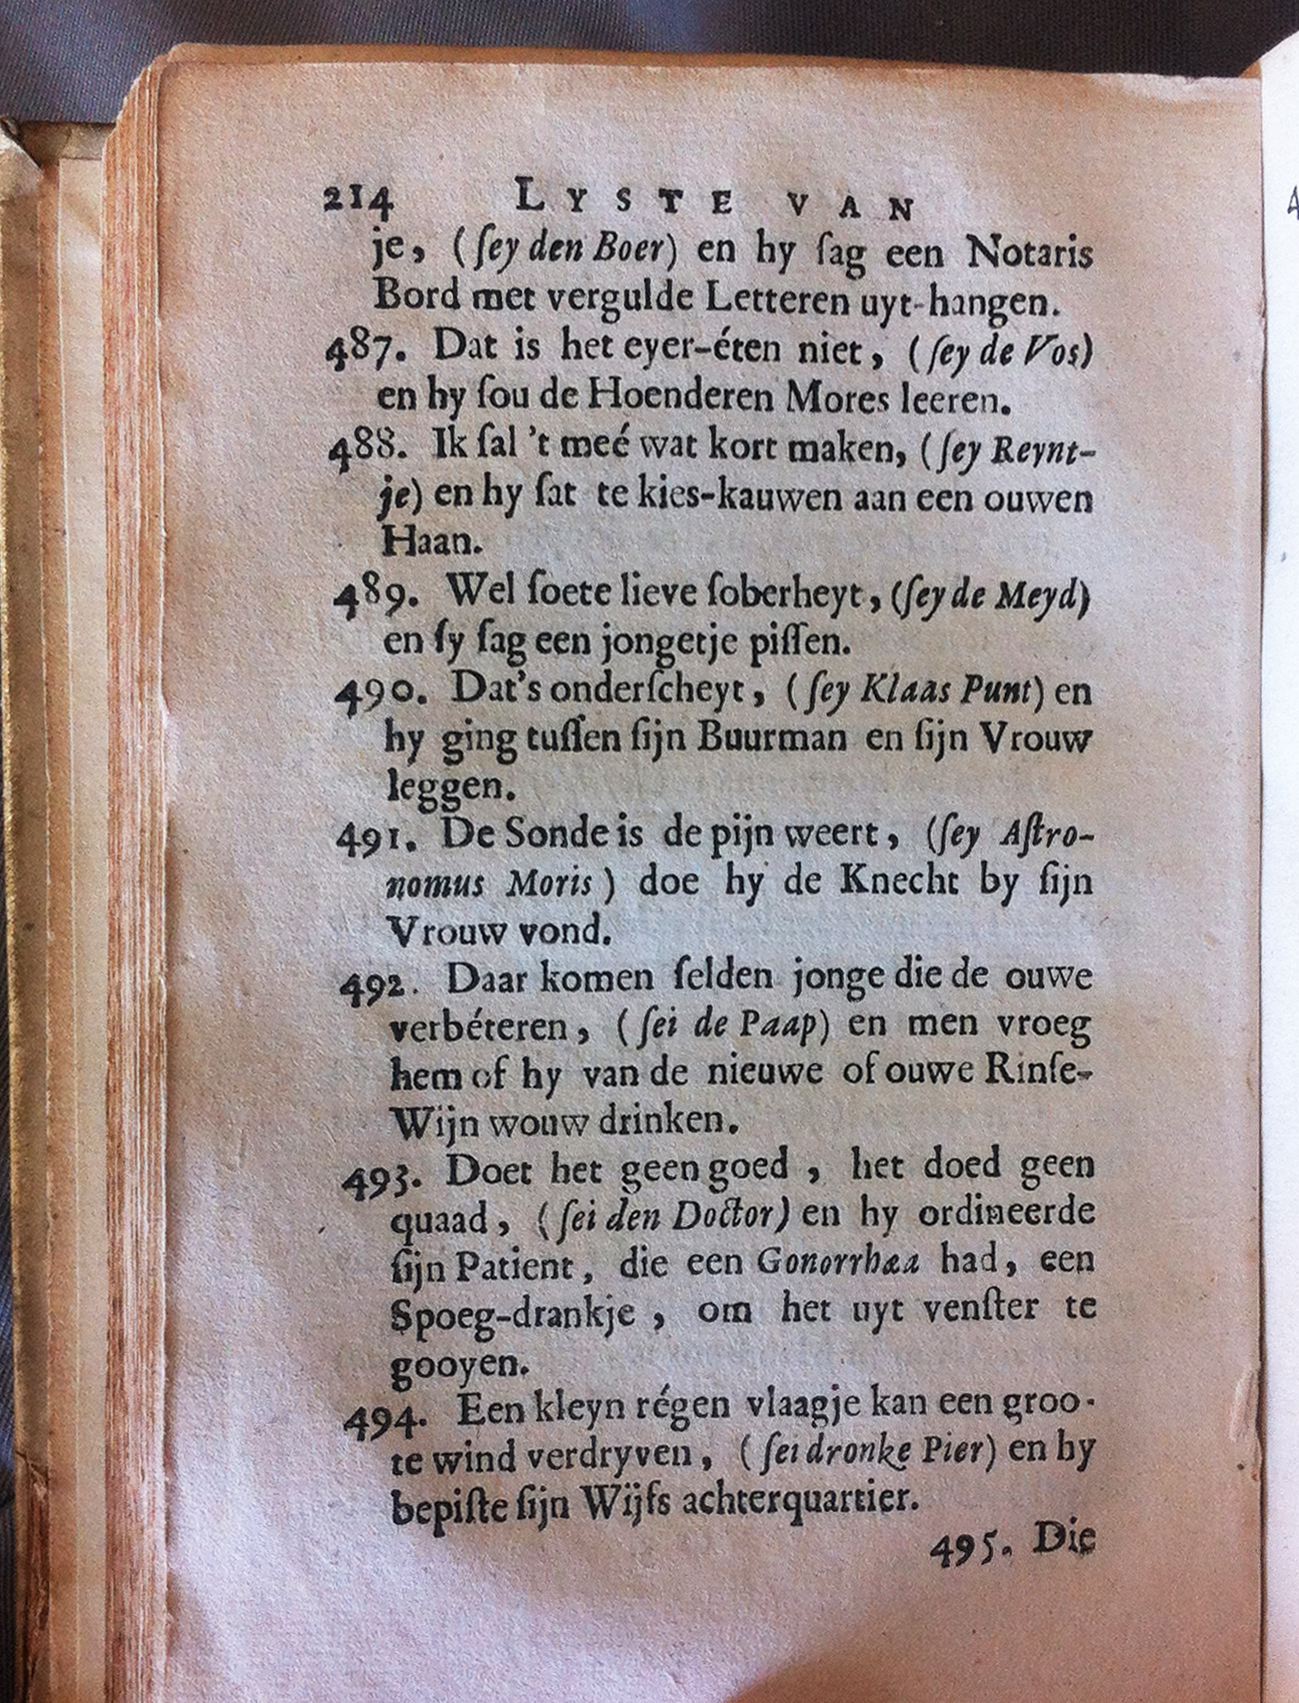 214 LYSTE VAN
je, (ſey den Boer) en hy ſag een Notaris
Bord met vergulde Letteren uyt-hangen.
487. Dat is het eyer-éten niet, (ſey de Vos)
en hy ſou de Hoenderen Mores leeren.
488. Ik ſal 't meé wat kort maken, (ſey Reynt-
je) en hy ſat te kies-kauwen aan een ouwen
Haan.
489. Wel ſoete lieve ſoberheyt, (ſey de Meyd)
en ſy ſag een jongetje piſſen.
490. Dat's onderſcheyt, (ſey Klaas Punt) en
hy ging tuſſen ſijn Buurman en ſijn Vrouw
leggen.
491. De Sonde is de pijn weert, (ſey Aſtro-
nomus Moris) doe hy de Knecht by ſijn
Vrouw vond.
492. Daar komen ſelden jonge die de ouwe
verbéteren, (ſei de Paap) en men vroeg
hem of hy van de nieuwe of ouwe Rinſe-
Wijn wouw drinken.
493. Doet het geen goed, het doed geen
quaad, (ſei den Doctor) en hy ordineerde
ſijn Patient, die een Gonorrhæa had, een
Spoeg-drankje, om het uyt venſter te
gooyen.
494. Een kleyn régen vlaagje kan een groo-
te wind verdryven, (ſei dronke Pier) en hy
bepiſte ſijn Wijfs achterquartier.
495. Die